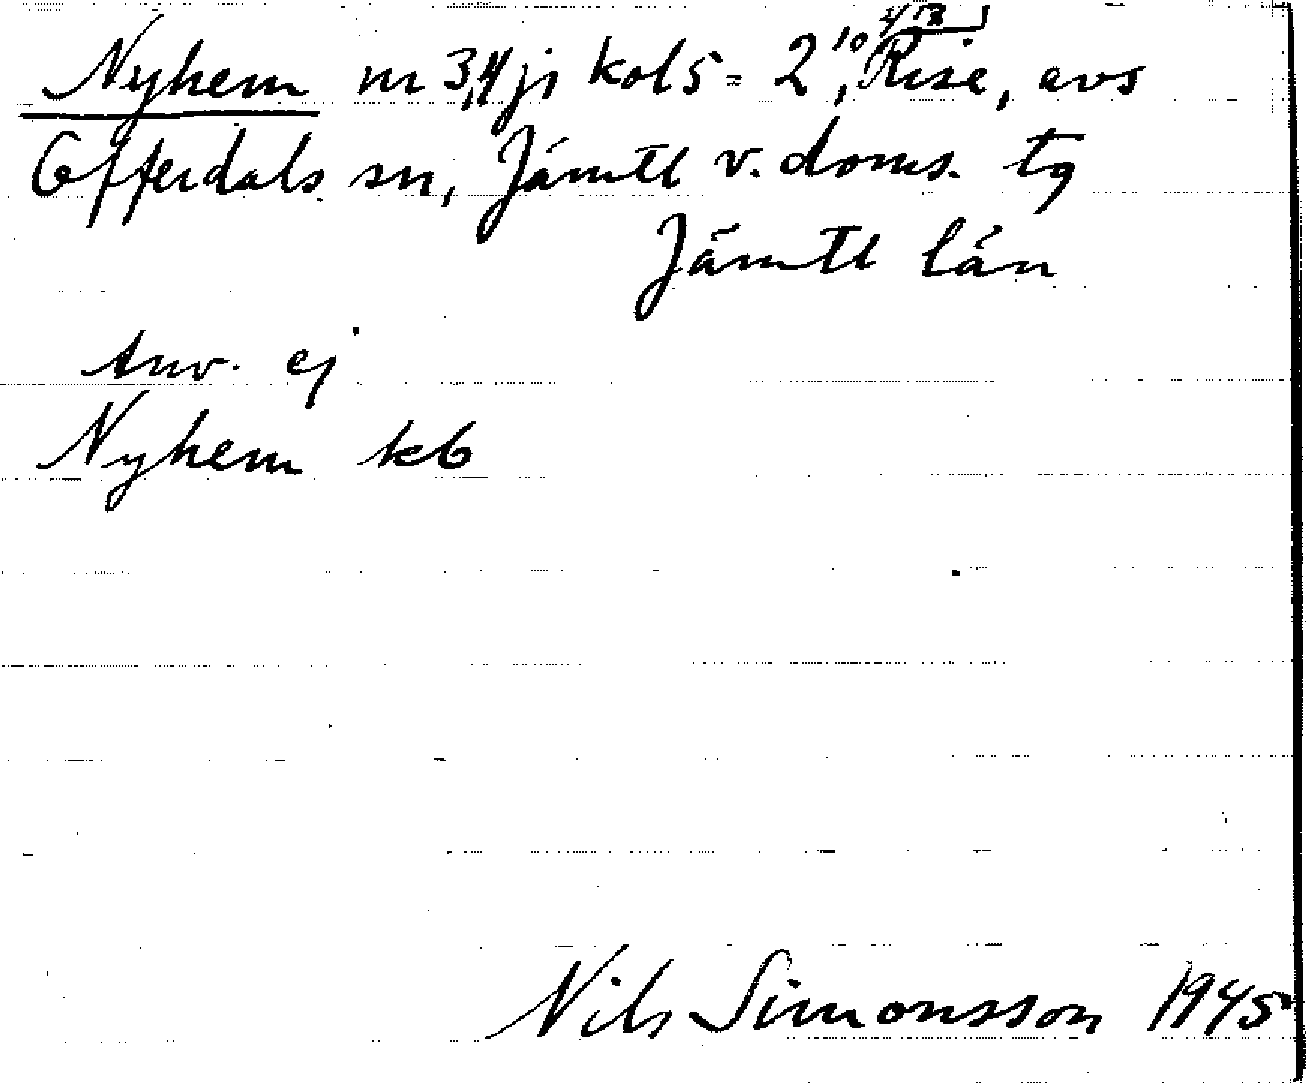 Nyhem nr 3,4 ji kol 5 = 2¹⁰, Rise, avs
Offerdals sn, Jämtl v. doms. tg
Jämtl län
Anv. ej
Nyhem kb
Nils Simonsson 1945